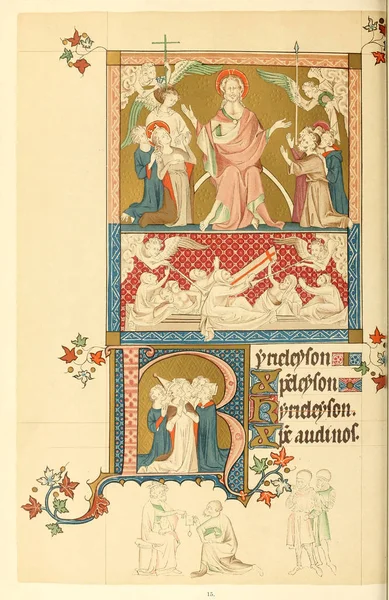 Kyrieleyson
Xp̄eleyson.
Kyrieleyson.
Xp̄e audi nos.
15.